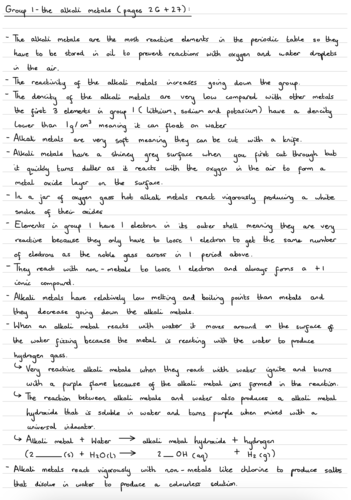 Group 1 - the alkali metals (pages 26 + 27):
- The alkali metals are the most reactive elements in the periodic table so they
have to be stored in oil to prevent reactions with oxygen and water droplets
in the air.
- The reactivity of the alkali metals increases going down the group.
- The density of the alkali metals are very low compared with other metals
the first 3 elements in group 1 (lithium, sodium and potassium) have a density
lower than 1g/cm³ meaning it can float on water
- Alkali metals are very soft meaning they can be cut with a knife.
- Alkali metals have a shiney grey surface when you first cut through but
it quickly turns duller as it reacts with the oxygen in the air to form a
metal oxide layer on the surface.
- In a jar of oxygen gas hot alkali metals react vigorously producing a white
smoke of their oxides
- Elements in group 1 have 1 electron in its outer shell meaning they are very
reactive because they only have to loose 1 electron to get the same number
of electrons as the noble gass across in 1 period above.
- They react with non-metals to loose 1 electron and always forms a +1
ionic compound.
- Alkali metals have relatively low melting and boiling points than metals and
they decrease going down the alkali metals.
- When an alkali metal reacts with water it moves around on the surface of
the water fizzing because the metal is reacting with the water to produce
hydrogen gass.
↳ Very reactive alkali metals when they reach with water ignite and burns
with a purple flame because of the alkali metal ions formed in the reaction.
↳ The reaction between alkali metals and water also produces a alkali metal
hydroxide that is soluble in water and turns purple when mixed with a
universal indicator.
↳ Alkali metal + Water → alkali metal hydroxide + hydrogen
(2 ____ (s) + H₂O(l) → 2 __ OH (aq) + H₂ (g))
- Alkali metals react vigorously with non-metals like chlorine to produce salts
that disolve in water to produce a colourless solution.